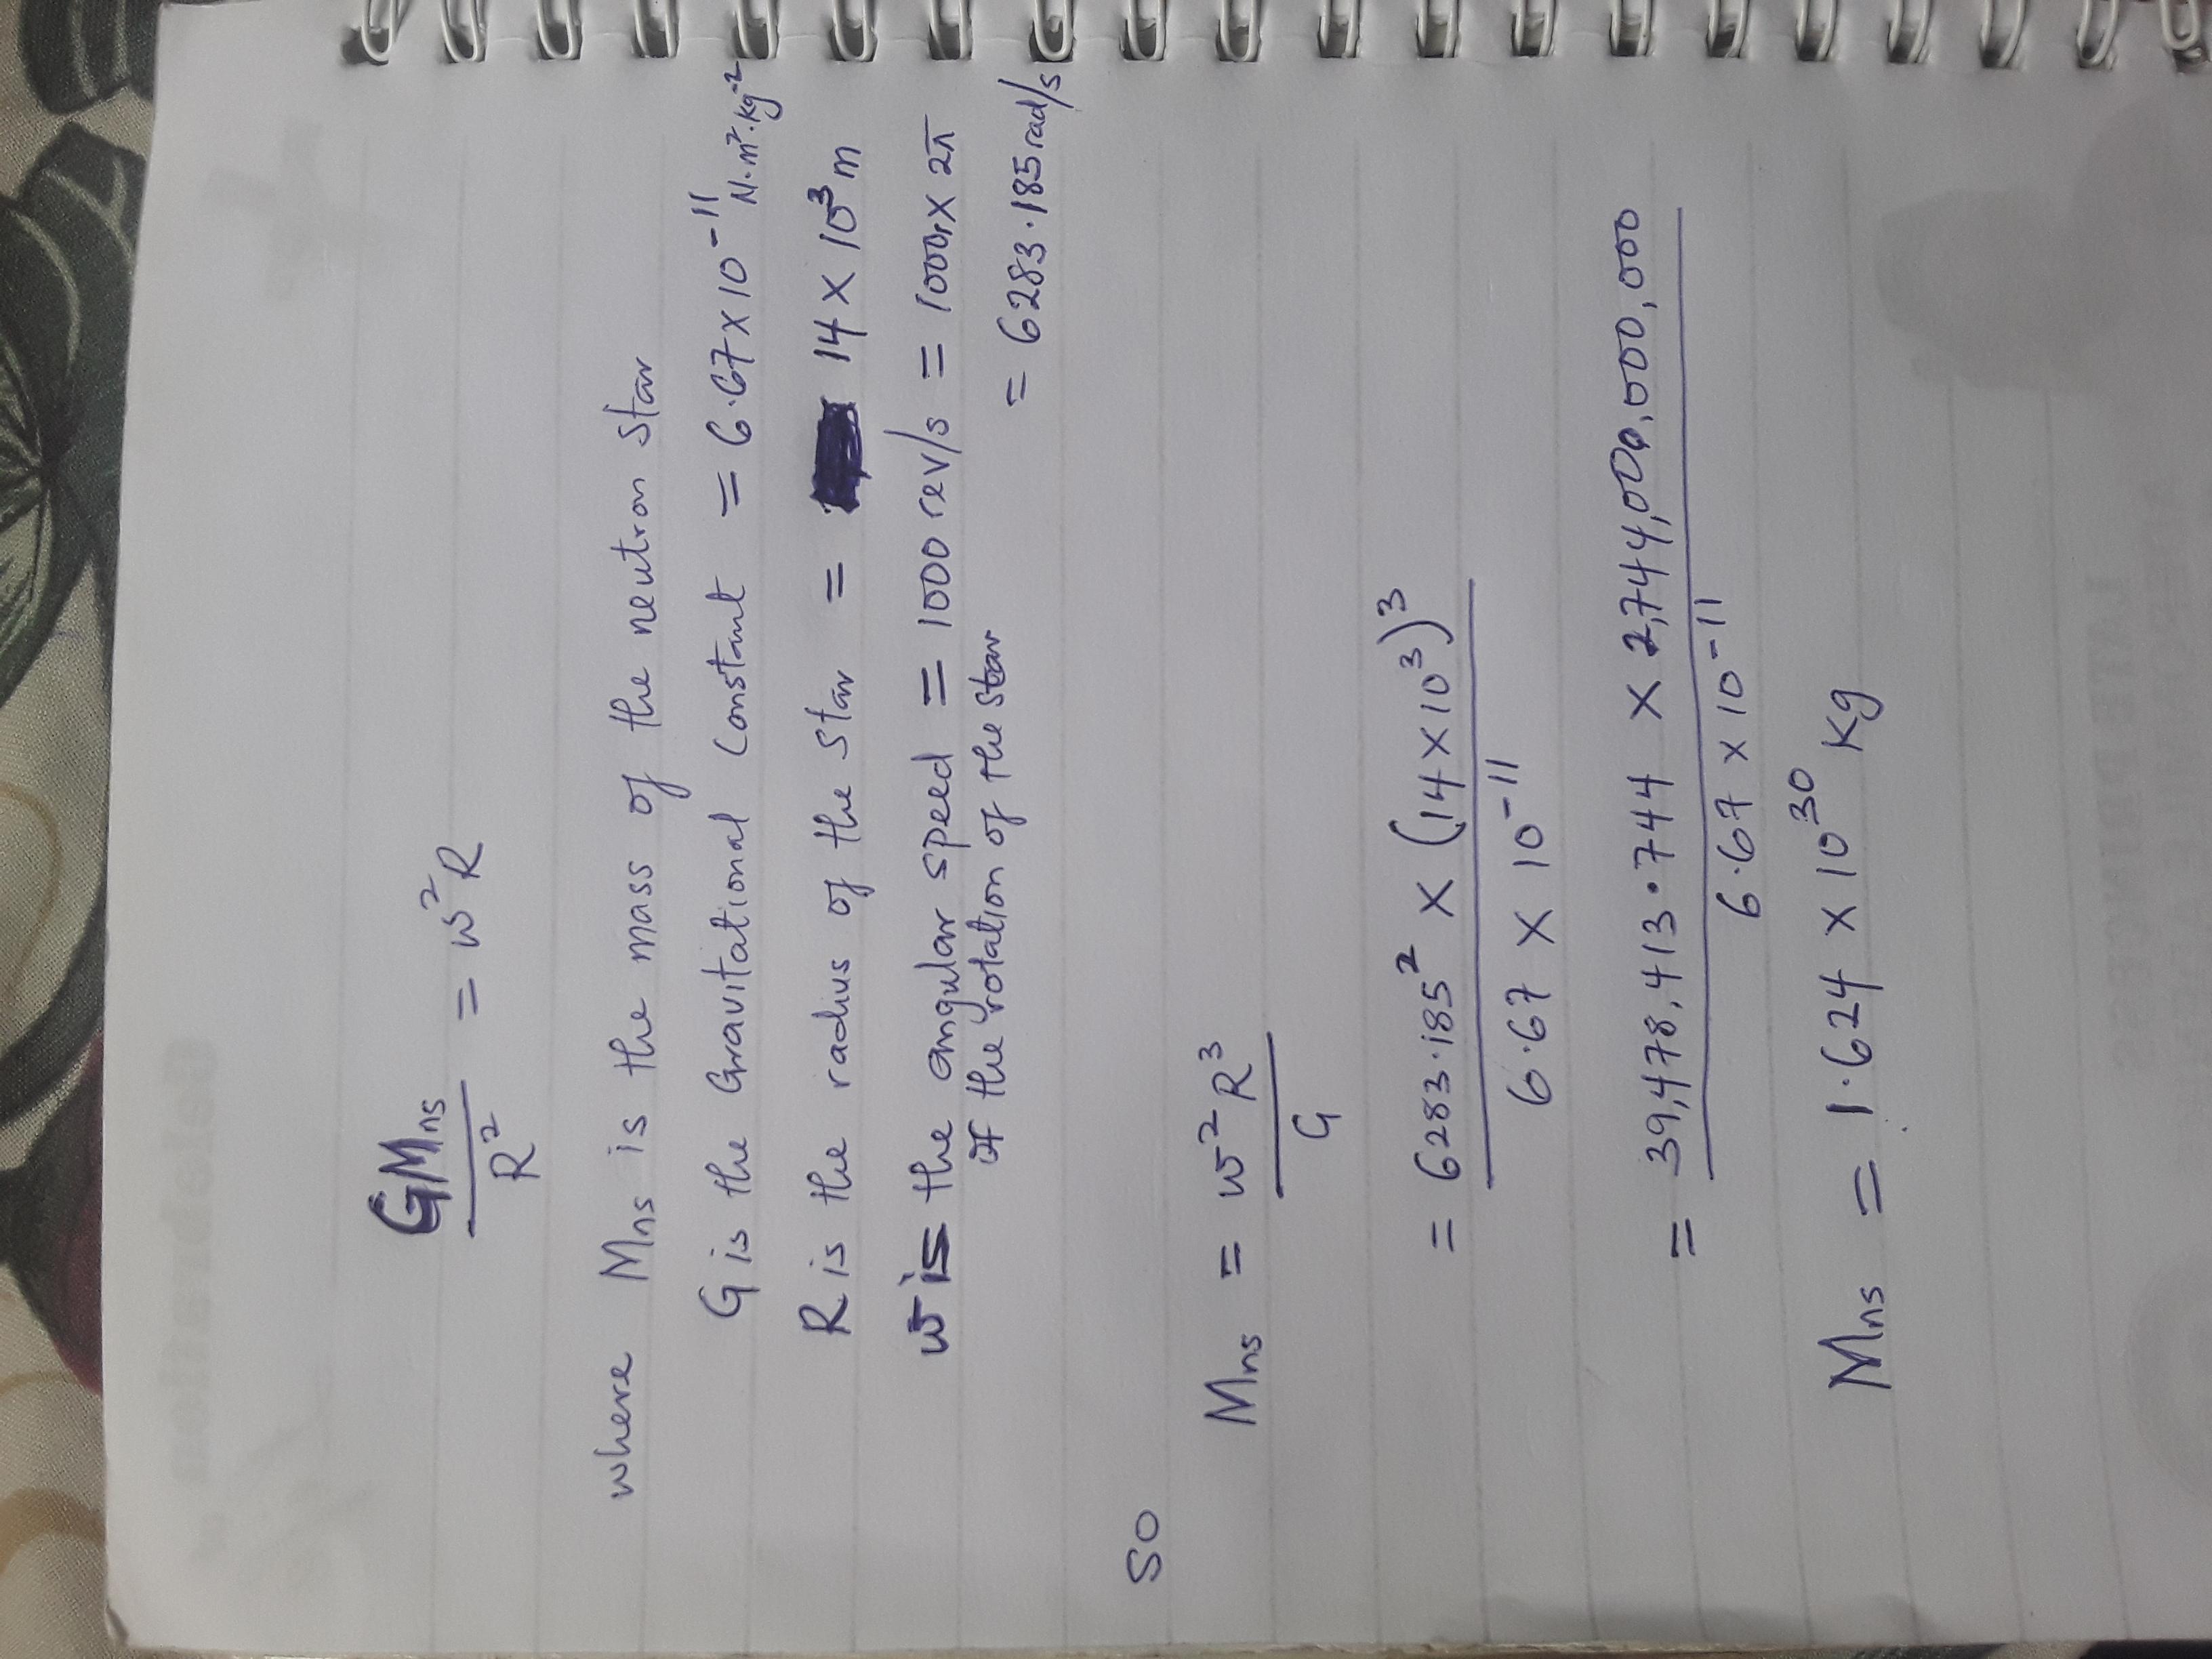 GMns / R² = ω²R
where Mns is the mass of the neutron star
G is the Gravitational Constant = 6.67 x 10⁻¹¹ N.m².kg⁻²
R is the radius of the star = 14 x 10³ m
ω is the angular speed = 1000 rev/s = 1000 x 2π
of the rotation of the star = 6283.185 rad/s
so
Mns = ω² R³ / G
= 6283.185² x (14 x 10³)³ / 6.67 x 10⁻¹¹
= 39,478,413.744 x 2,744,000,000,000 / 6.67 x 10⁻¹¹
Mns = 1.624 x 10³⁰ kg